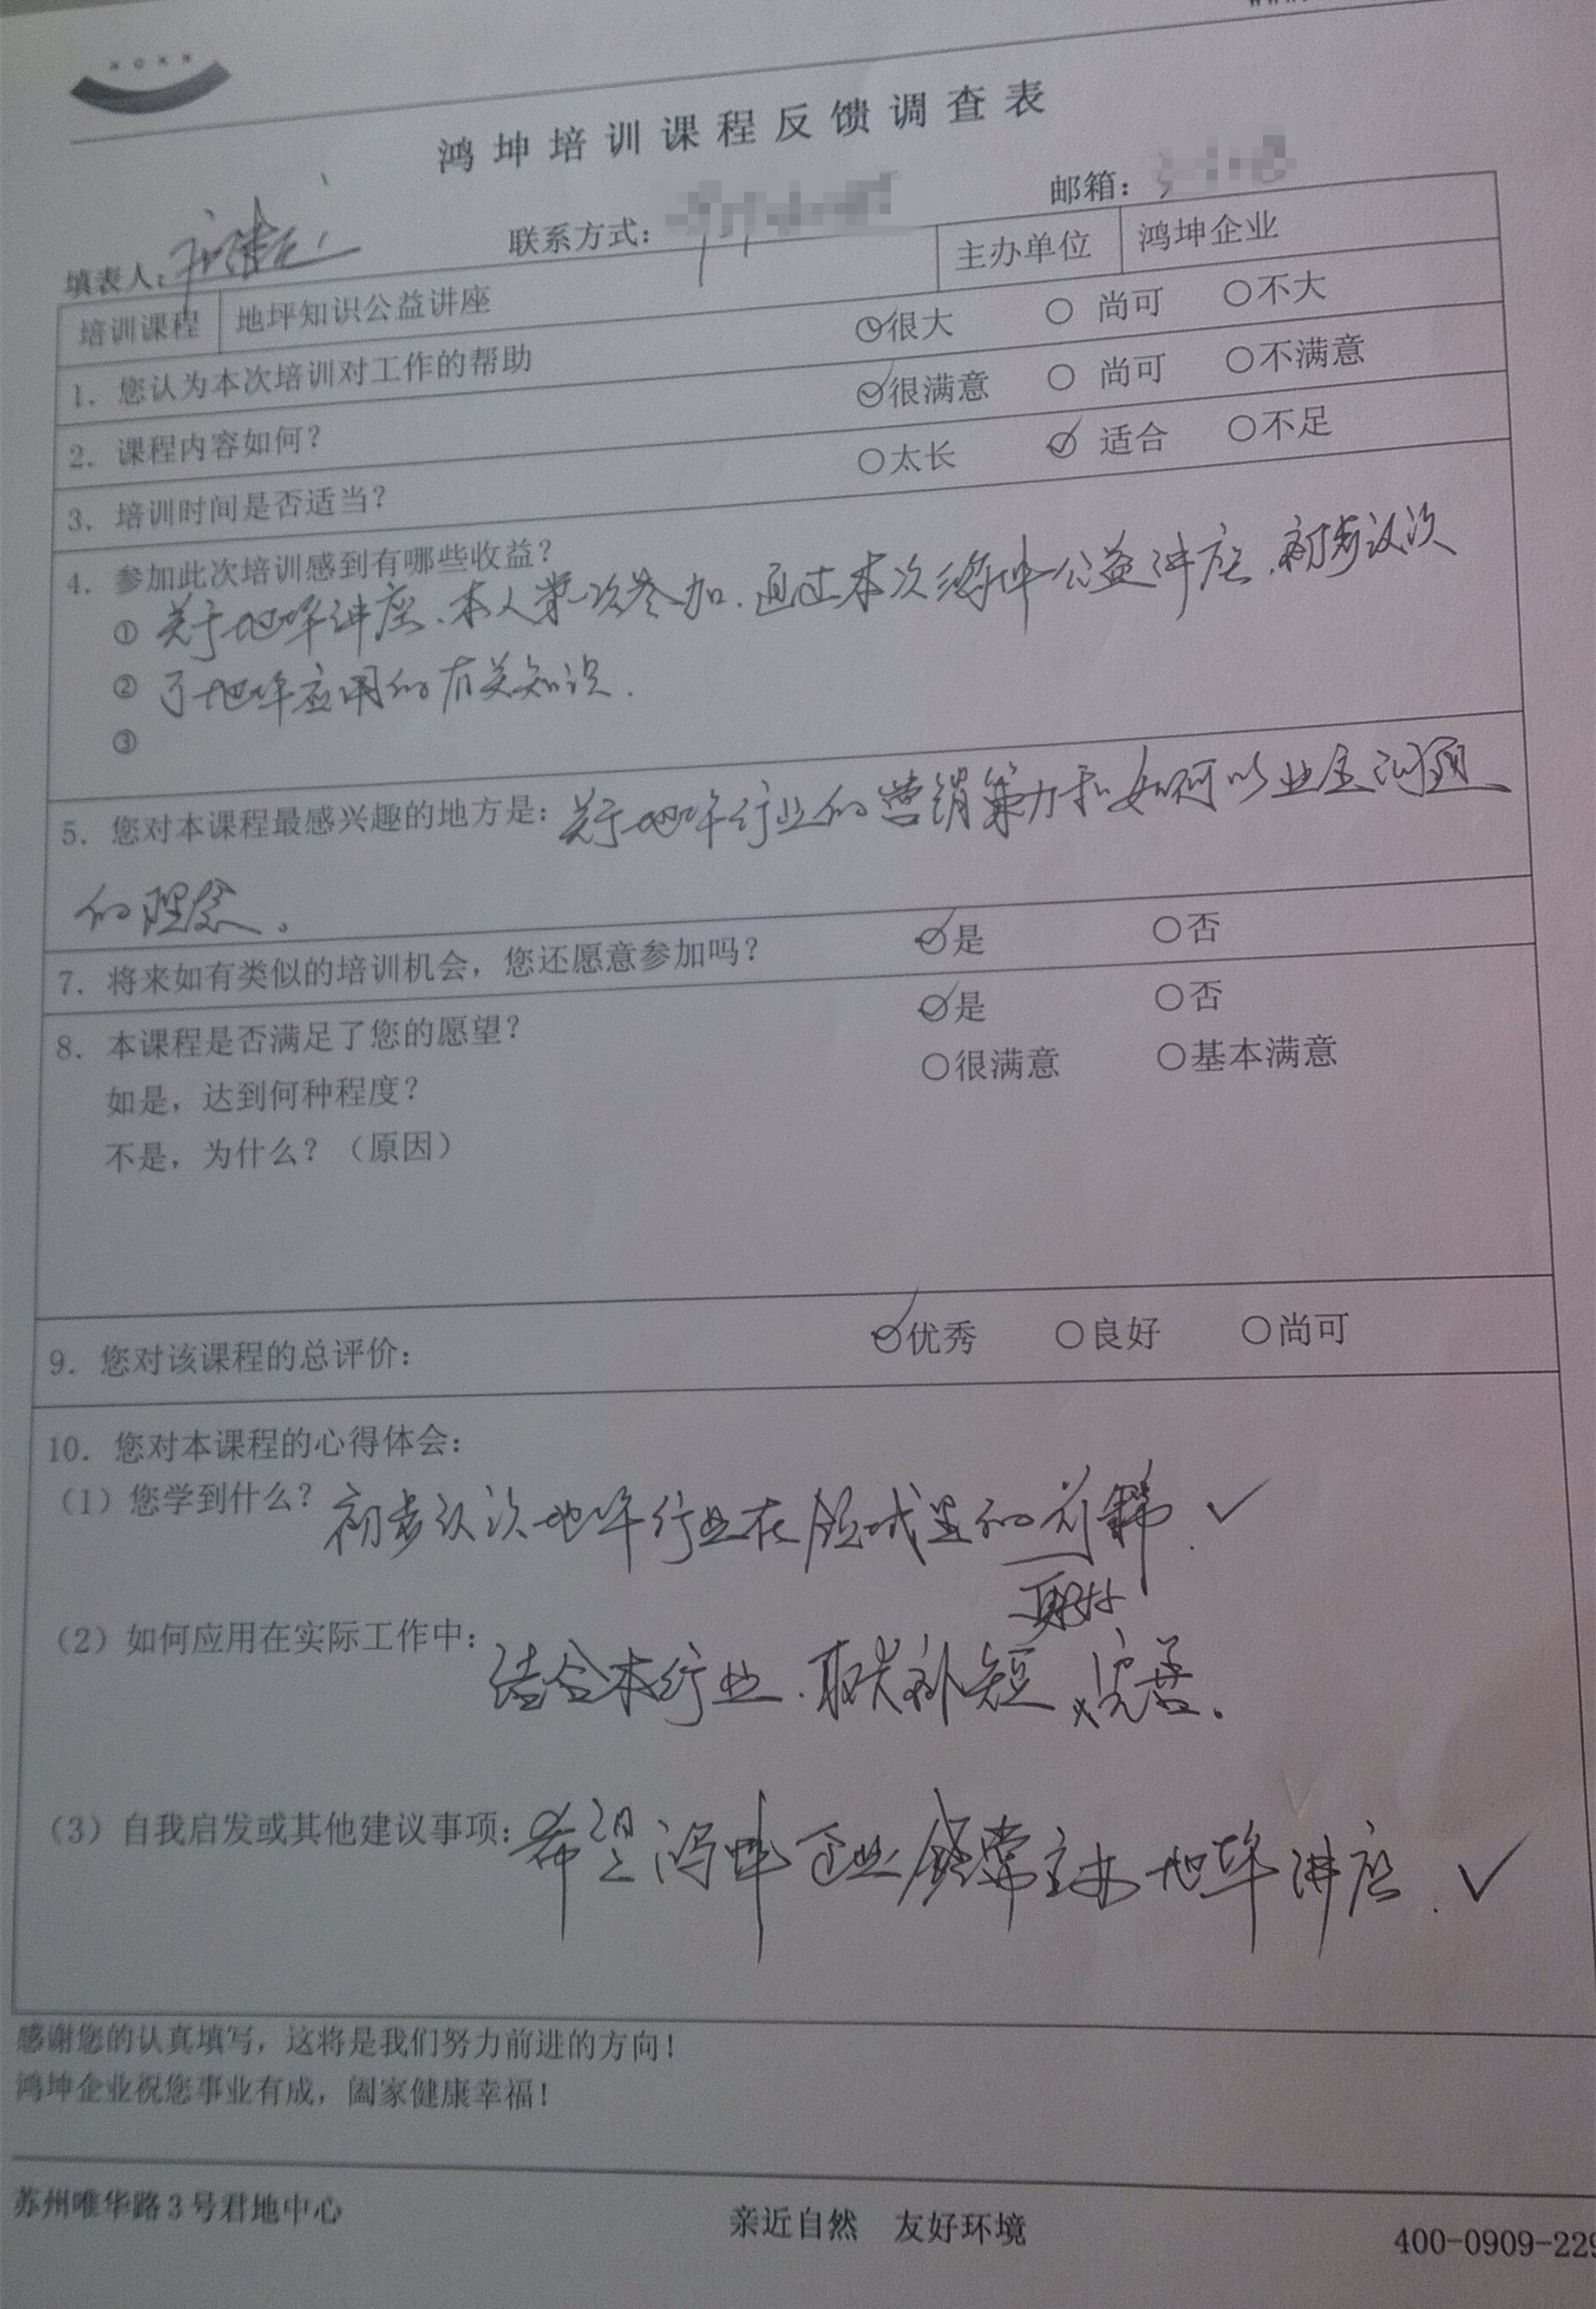 HOKN
鸿坤培训课程反馈调查表
填表人： 联系方式： 邮箱：
培训课程 地坪知识公益讲座 主办单位 鸿坤企业
1. 您认为本次培训对工作的帮助 ○很大 ○ 尚可 ○不大
2. 课程内容如何？ ○很满意 ○ 尚可 ○不满意
3. 培训时间是否适当？ ○太长 ○ 适合 ○不足
4. 参加此次培训感到有哪些收益？
① 关于地坪讲座、本人第一次参加、通过本次鸿坤公益讲座、初步认次
② 了地坪应用的有关知识.
③
5. 您对本课程最感兴趣的地方是：关于地坪行业的营销策力和如何以业主沟通
的理念。
7. 将来如有类似的培训机会，您还愿意参加吗？ ○是 ○否
8. 本课程是否满足了您的愿望？ ○是 ○否
如是，达到何种程度？ ○很满意 ○基本满意
不是，为什么？（原因）
9. 您对该课程的总评价： ○优秀 ○良好 ○尚可
10. 您对本课程的心得体会：
（1）您学到什么？初步认次地坪行业在领域里的前 ✓
（2）如何应用在实际工作中：结合本行业、取长补短 完善。
（3）自我启发或其他建议事项：希望鸿坤企业经常主办地坪讲座. ✓
感谢您的认真填写，这将是我们努力前进的方向！
鸿坤企业祝您事业有成，阖家健康幸福！
苏州唯华路3号君地中心 亲近自然 友好环境 400-0909-229